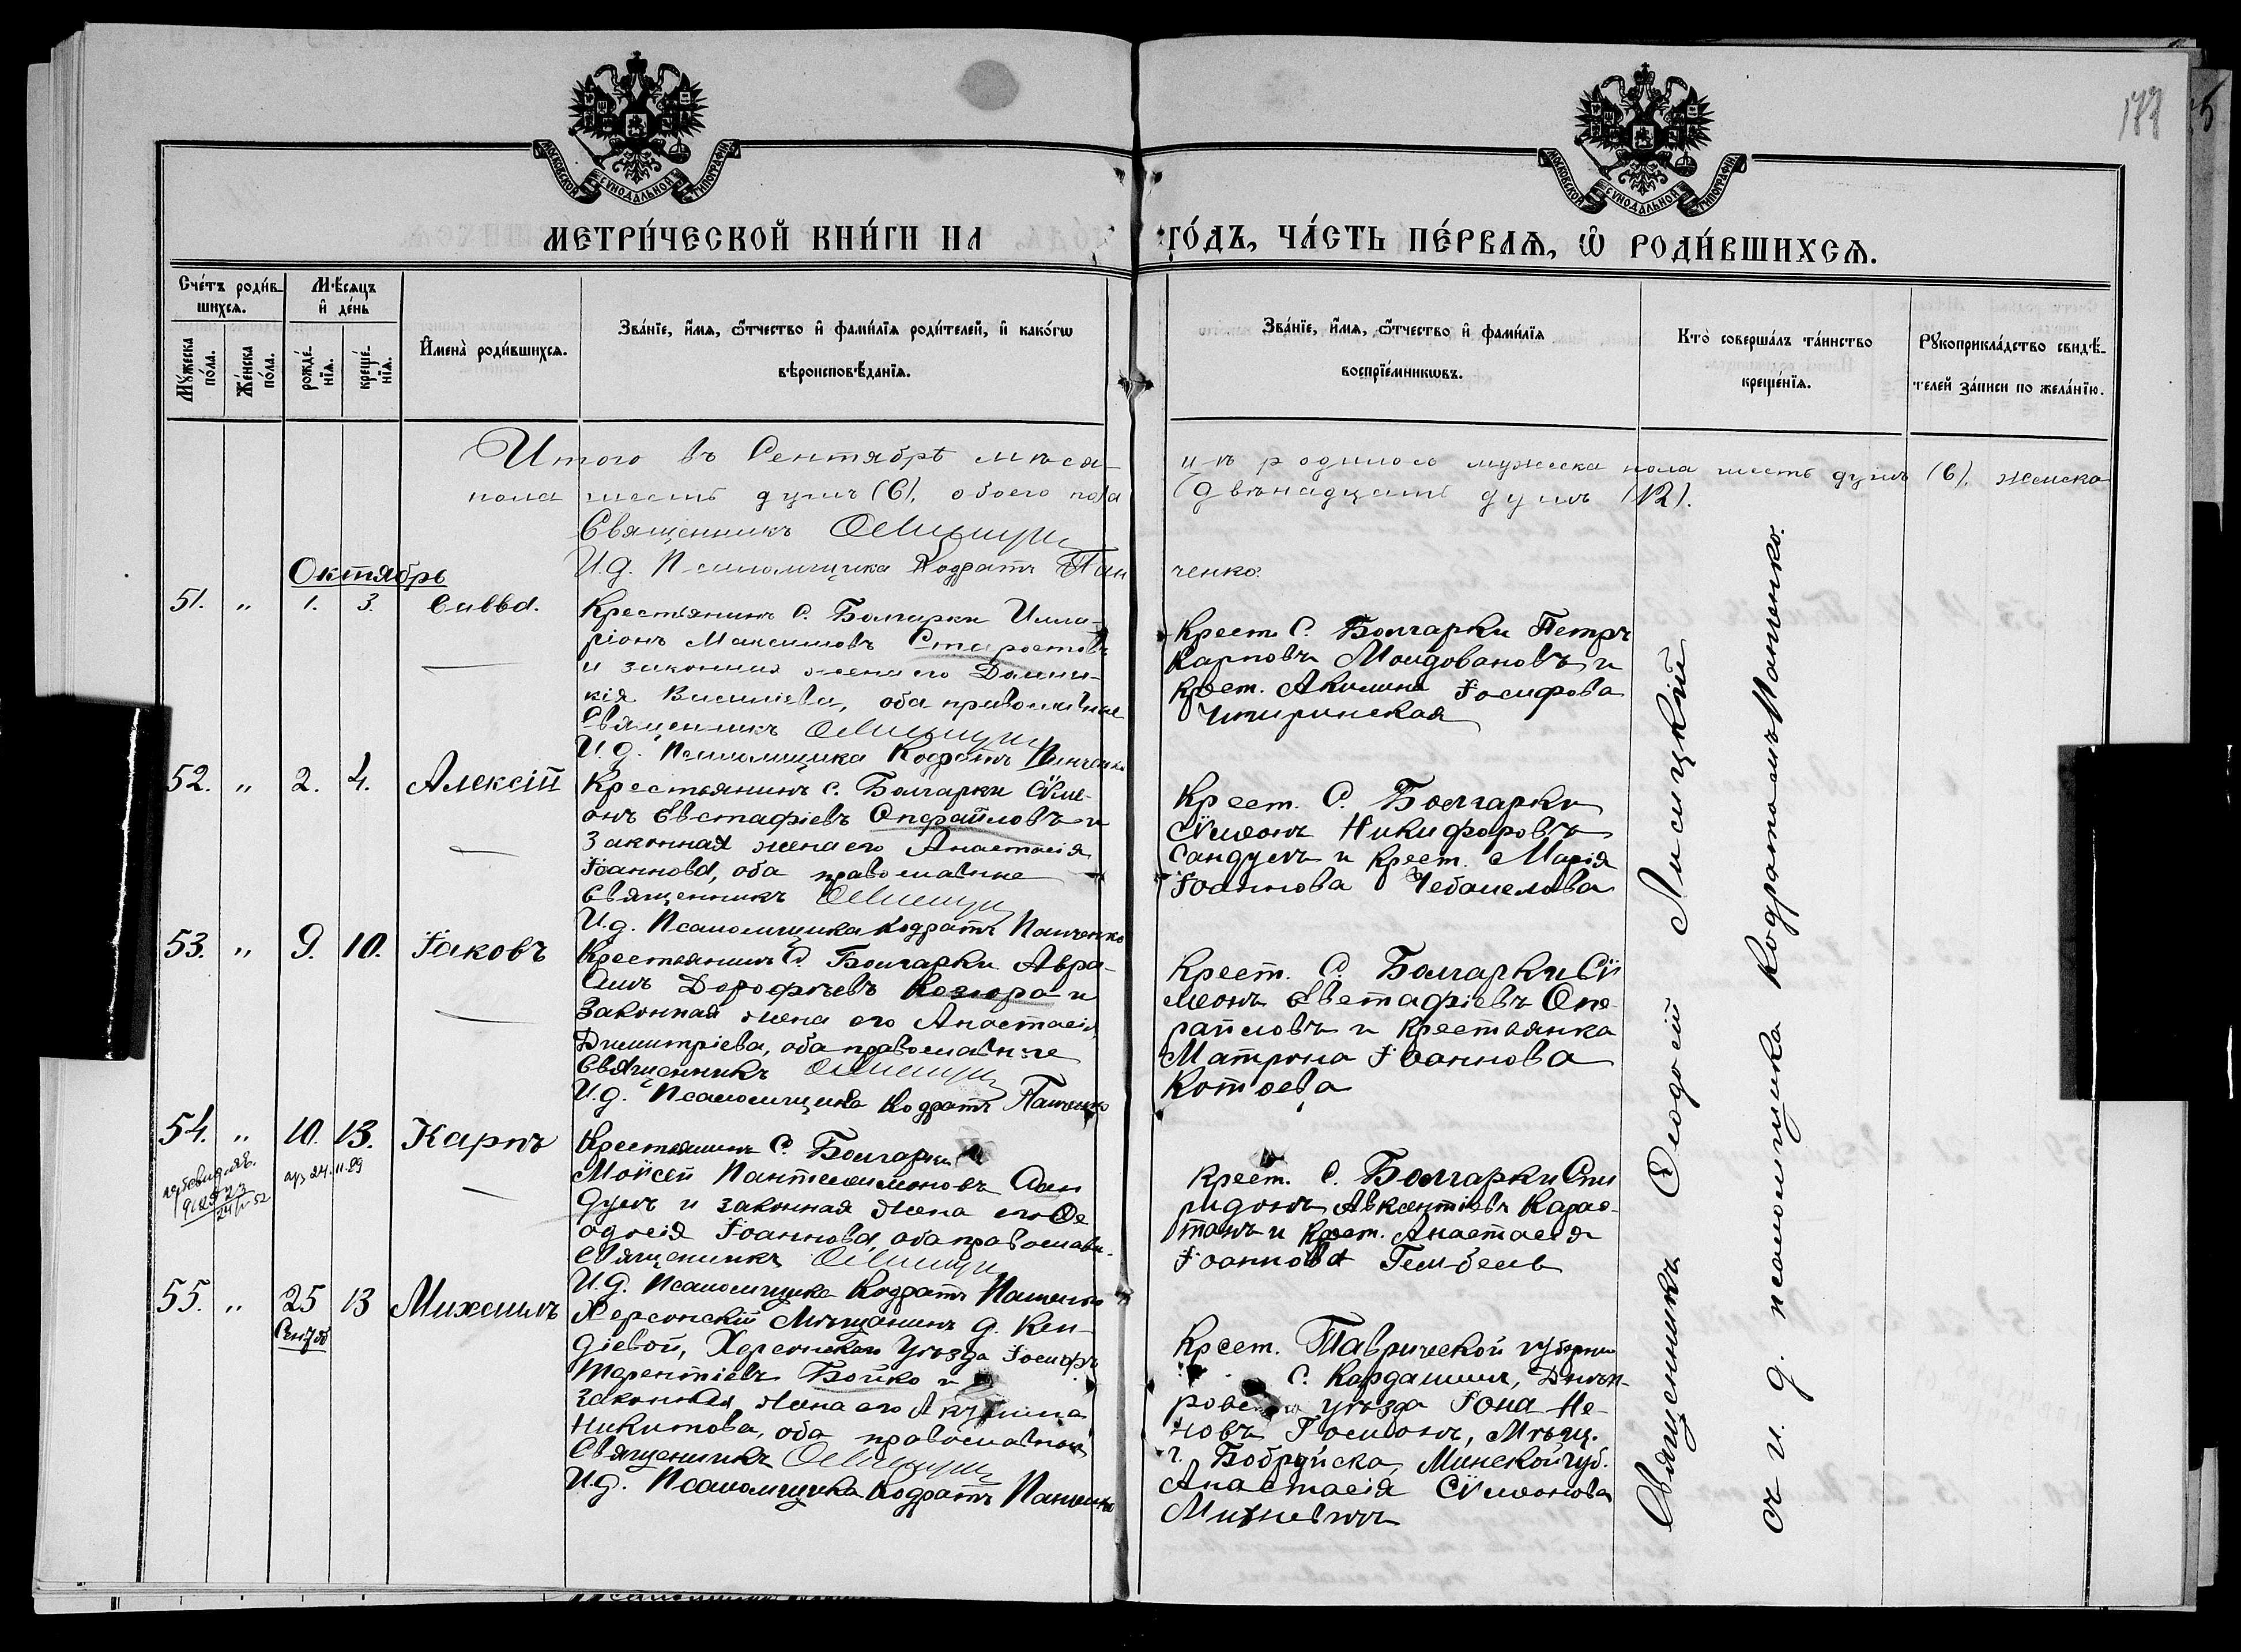 189
МОСКОВСКОЙ СѴНОДАЛЬНОЙ ТИПОГРАФІИ
МОСКОВСКОЙ СѴНОДАЛЬНОЙ ТИПОГРАФІИ
МЕТРИ́ЧЕСКОЙ КНИ́ГИ НА ГО́ДЪ, ЧА́СТЬ ПЕ́РВАѦ, Ѡ҆ РОДИ́ВШИХСѦ.
Сче́тъ роди́в-
шихсѧ.
Мѣ́сѧцъ
и҆ де́нь
Му́жеска по́ла.
Же́нска по́ла.
рожде́-нїѧ.
креще́-нїѧ.
И҆мена̀ роди́вшихсѧ.
Зва́нїе, и҆́мѧ, ѻ҆́тчество и҆ фами́лїѧ роди́телей, и҆ како́гѡ
вѣроисповѣ́данїѧ.
Зва́нїе, и҆́мѧ, ѻ҆́тчество и҆ фами́лїѧ
воспрїе́мникѡвъ.
Кто̀ соверша́лъ та́инство
креще́нїѧ.
Рꙋкоприкла́дство свидѣ́-
телей за́писи по жела́нїю.
Итого въ Сентябрѣ мѣся-
цѣ родилось мужеска пола шесть душъ (6), женска
пола шесть душъ (6), обоего пола
двѣнадцать душъ (12).
Священникъ
И.д. Псаломщика Кодратъ Панченко.
Октябрь
51. " 1. 3. Савва.
Крестьянинъ с. Болгарки Илла-
ріонъ Максимовъ Старостовъ
и законная жена его Домни-
кія Василіева, оба православные
Священникъ
И.д. Псаломщика Кодратъ Панченко
Крест. с. Болгарки Петръ
Карповъ Молдовановъ и
Крест. Акилина Іосифова
Чигиринская
52. " 2. 4. Алексій
Крестьянинъ с. Болгарки Сѵме-
онъ Евстафіевъ Операиловъ и
законная жена его Анастасія
Іоаннова, оба православные
Священникъ
И.д. Псаломщика Кодратъ Панченко
Крест. с. Болгарки
Сѵмеонъ Никифоровъ
Сандулъ и Крест. Марія
Іоаннова Чебанелова
53. " 9. 10. Іаковъ
Крестьянинъ с. Болгарки Авра-
амъ Дорофѣевъ Козюра и
законная жена его Анастасія
Димитріева, оба православные
Священникъ
И.д. Псаломщика Кодратъ Панченко
Крест. с. Болгарки Сѵ-
меонъ Евстафіевъ Опе-
раиловъ и крестьянка
Матрона Іоаннова
Котоева
54. " 10. 13. Карпъ
24.11.89
Крестьянинъ с. Болгарки
Моѵсей Пантелеимоновъ Сан
дулъ и законная жена его Ѳе
одосія Іоаннова, оба православн.
Священникъ
И.д. Псаломщика Кодратъ Панченко
Крест. с. Болгарки Спи
ридонъ Авксентіевъ Карас-
танъ и Крест. Анастасія
Іоаннова Гельбель
55. " 25 13 Михаилъ
Сентяб
Херсонскій Мѣщанинъ д. Кен-
діевой, Херсонскаго Уѣзда Іосифъ
Терентіевъ Бойко и
законная жена его Акилина
Никитова, оба православные
Священникъ
И.д. Псаломщика Кодратъ Панченко
Крест. Таврической губерніи
с. Кардашин, Днѣп-
ровскаго уѣзда Іона
Мѣщ.
г. Бобруйска, Минской губ.
Анастасія Сѵмеонова
Священникъ Ѳеодосій Лисицкій
съ и. д. псаломщика Кодратомъ Панченко.